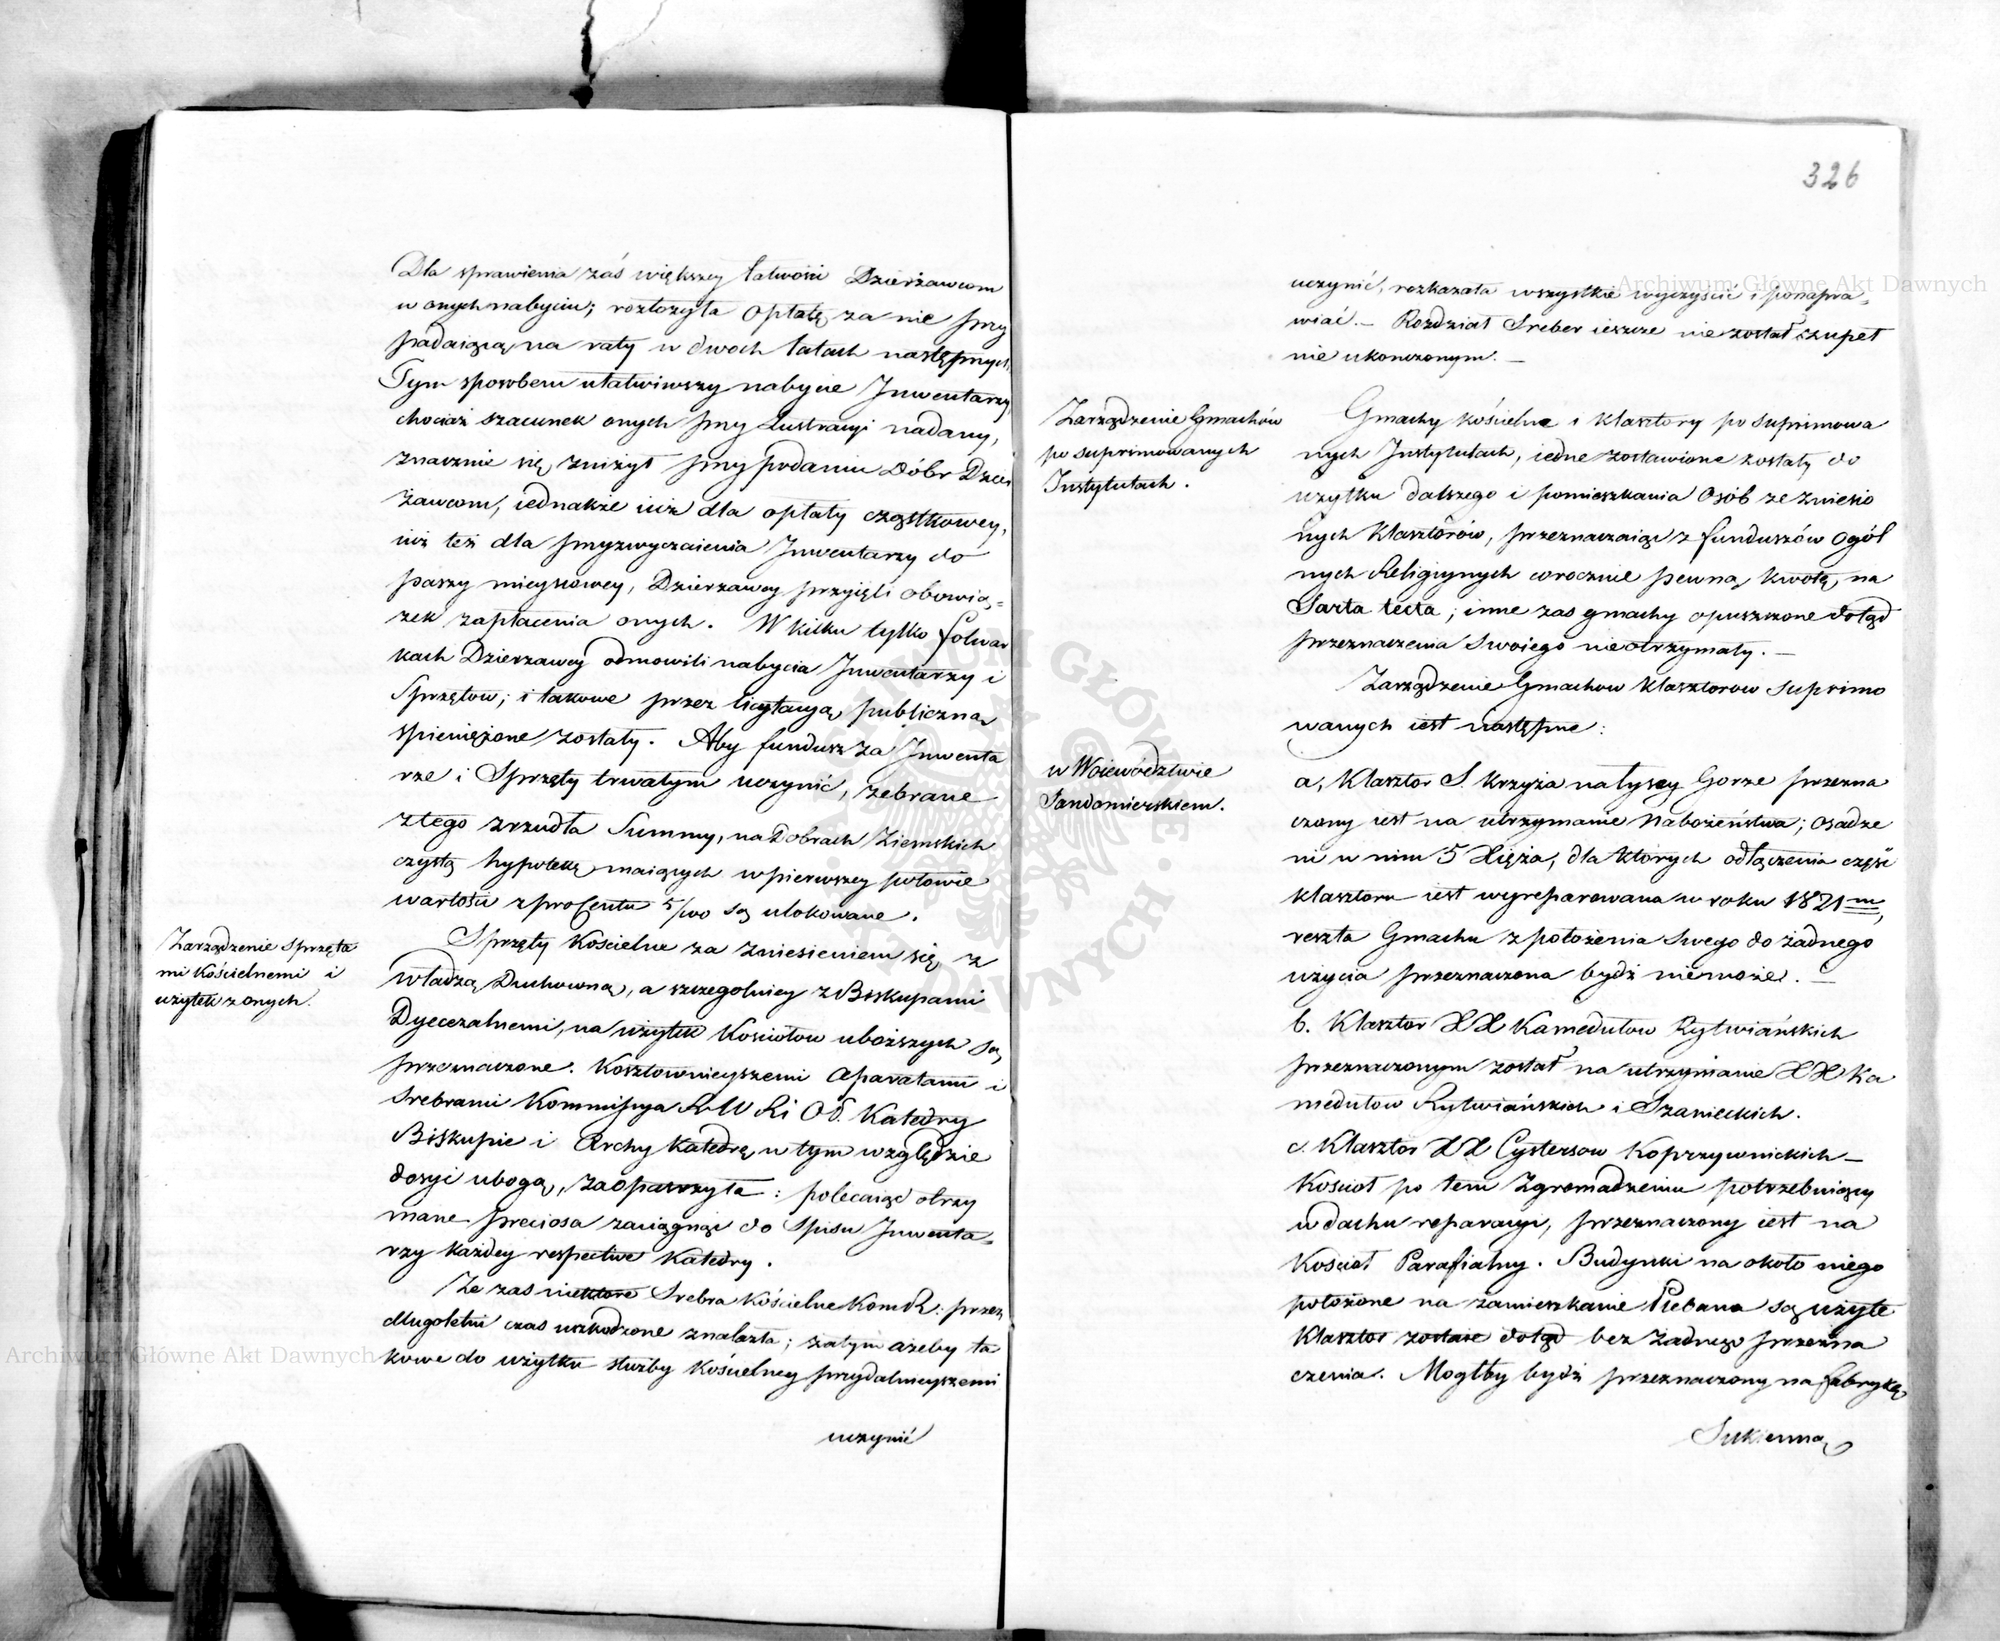 Dla sprawienia zaś większey łatwości Dzierżawcom
w onych nabyciu; rozłożyła opłatę za nie przy
padaiącą na raty w dwóch latach następnych
Tym sposobem ułatwiwszy nabycie Inwentarzy,
chociaż szacunek onych przy Lustracyi nadany,
znacznie się zniżył przy podaniu Dóbr Dzier
żawcom, iednakże iuż dla opłaty cząstkowey,
iuż też dla przyzwyczaienia Inwentarzy do
paszy mieyscowey, Dzierżawcy przyięli obowią=
zek zapłacenia onych. W kilku tylko folwar
kach Dzierżawcy odmowili nabycia Inwentarzy i
Sprzętow; i takowe przez licytacyą publiczną
spieniężone zostały. Aby fundusz za Inwenta
rze i Sprzęty trwałym uczynić, zebrane
z tego zrzudła Summy, na Dobrach Ziemskich
czystą hypotekę maiących w pierwszey połowie
wartości z procentu 5/100 są ulokowane.
Zarządzenie Sprzęta
mi Kościelnemi i
użytek z onych.
Sprzęty Kościelne za zniesieniem się z
władzą Duchowną, a szczegolniey z Biskupami
Dyecezalnemi, na użytek Kościołow uboższych są
przeznaczone. Kosztownieyszemi Aparatami i
Srebrami Kommissya R W R i O P. Katedry
Biskupie i Archy Katedrę w tym względzie
dosyć ubogą, zaopatrzyła: polecaiąc otrzy
mane preciosa zaciągnąć do Spisu Inwenta=
rzy każdey respective Katedry.
Że zas niektóre Srebra Kościelne Kom R: przez
długoletni czas uszkodzone znalazła; zatym ażeby ta
kowe do użytku służby Kościelney przydatnieyszemi
uczynić
326
uczynić, rozkazała wszystkie wyczyścić i ponapra=
wiać.— Rozdział Sreber ieszcze nie został zupeł
nie ukonczonym.—
Zarządzenie Gmachów
po suprimowanych
Instytutach.
Gmachy kościelne i klasztory po suprimowa
nych Instytutach, iedne zostawione zostały do
użytku dalszego i pomieszkania Osób ze zniesio
nych Klasztórów, przeznaczaiąc z funduszów ogól
nych Religiynych corocznie pewną kwotę na
Sarta tecta; inne zas gmachy opuszczone dotąd
przeznaczenia swoiego nieotrzymały.—
Zarządzenie Gmachow Klasztorow suprimo
wanych iest następne:
w Woiewództwie
Sandomierskiem.
a, Klasztor S. Krzyża na Łysey Gorze przezna
czony iest na utrzymanie Nabożeństwa; osadze
ni w nim 5 Xięża, dla których odłączenia część
klasztoru iest wyreparowana w roku 1821m,
reszta Gmachu z położenia swego do żadnego
użycia przeznaczona bydź niemoże.—
b. Klasztor XX Kamedułow Rytwiańskich
przeznaczonym został na utrzymanie XX Ka
medułow Rytwiańskich i Szanieckich.
c. Klasztor XX Cystersow Koprzywnickich—
Kościoł po tem Zgromadzeniu potrzebuiący
w dachu reparacyi, przeznaczony iest na
Kościoł Parafialny. Budynki na około niego
położone na zamieszkanie Plebana są użyte
Klasztor zostaie dotąd bez żadnego przezna
czenia. Mogłby bydź przeznaczony na fabrykę
Sukienną
Archiwum Główne Akt Dawnych
Archiwum Główne Akt Dawnych